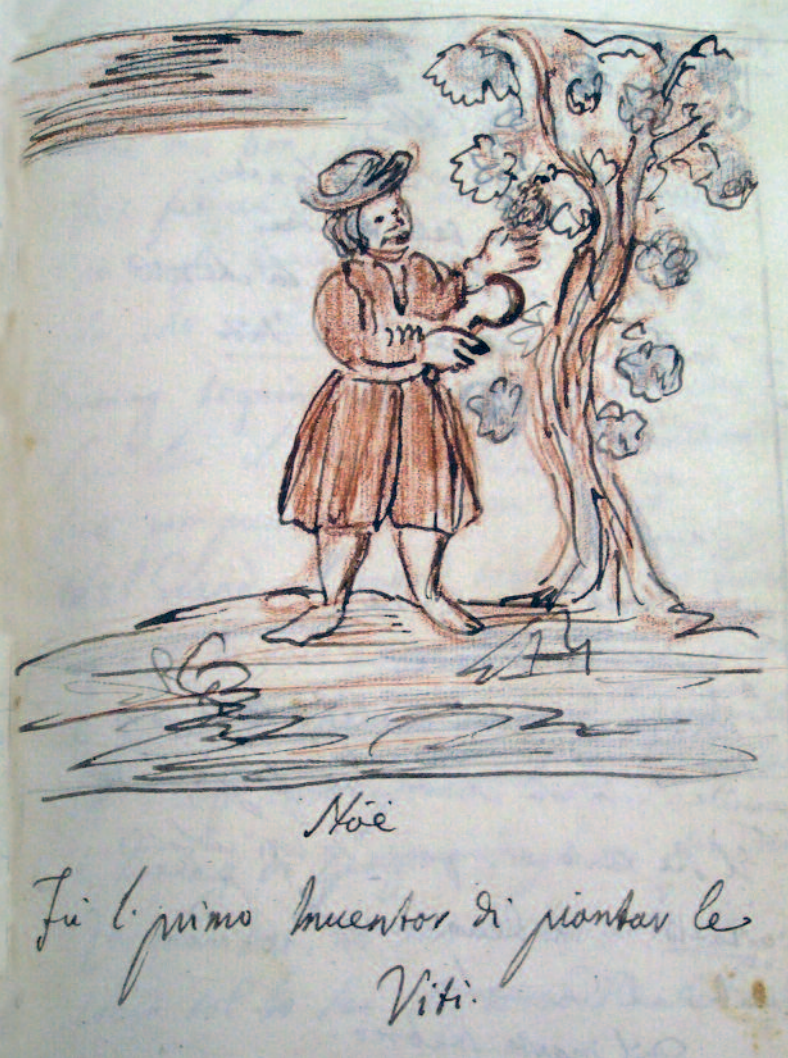 Nöe
Fù l' primo Inuentor di piantar le
Viti.